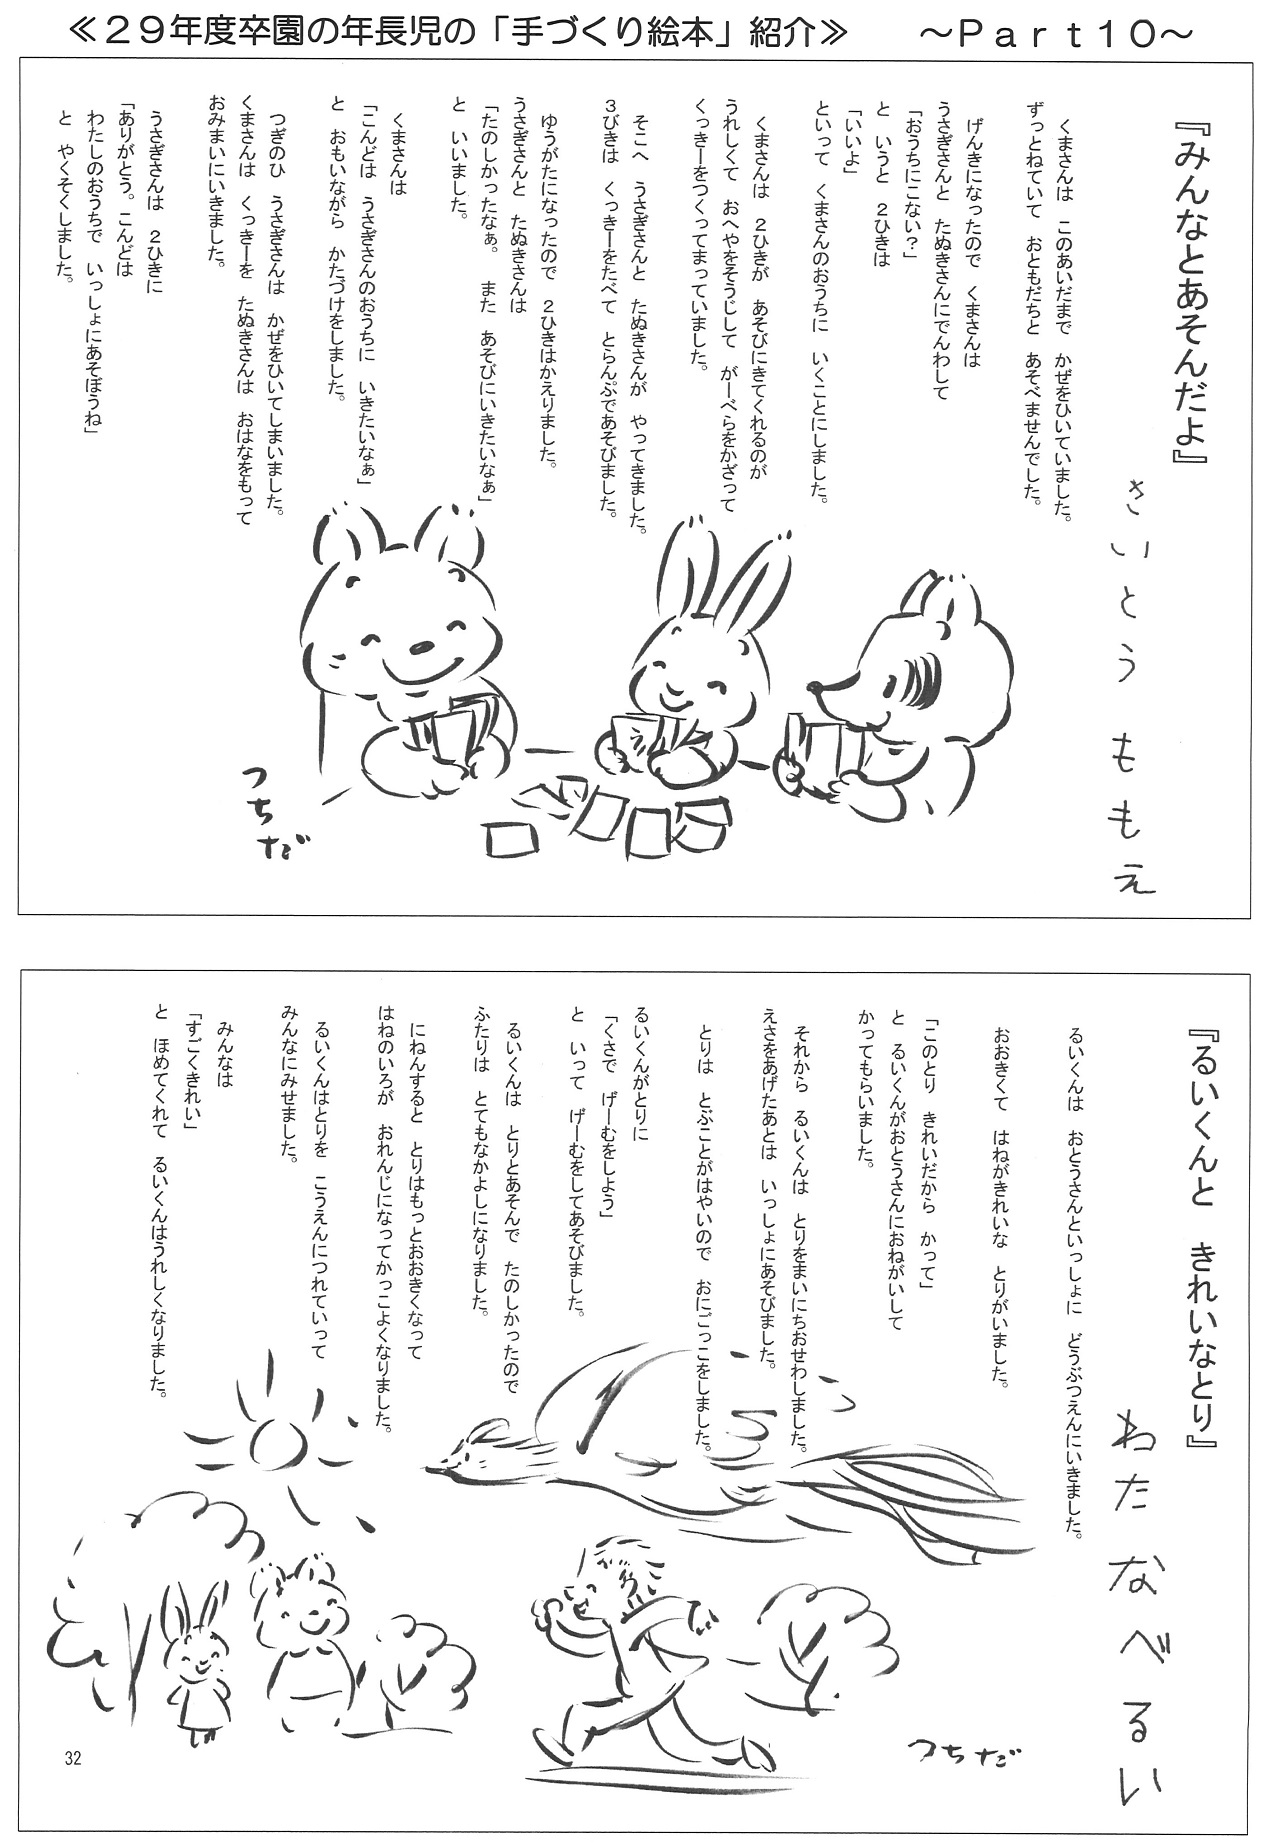 ≪２９年度卒園の年長児の「手づくり絵本」紹介≫　　～Ｐａｒｔ１０～
『みんなとあそんだよ』
さいとう ももえ
くまさんは　このあいだまで　かぜをひいていました。
ずっとねていて　おともだちと　あそべませんでした。
げんきになったので　くまさんは
うさぎさんと　たぬきさんにでんわして
「おうちにこない？」
と　いうと　２ひきは
「いいよ」
といって　くまさんのおうちに　いくことにしました。
くまさんは　２ひきが　あそびにきてくれるのが
うれしくて　おへやをそうじして　がーべらをかざって
くっきーをつくってまっていました。
そこへ　うさぎさんと　たぬきさんが　やってきました。
３びきは　くっきーをたべて　とらんぷであそびました。
ゆうがたになったので　２ひきはかえりました。
うさぎさんと　たぬきさんは
「たのしかったなぁ。　また　あそびにいきたいなぁ」
と　いいました。
くまさんは
「こんどは　うさぎさんのおうちに　いきたいなぁ」
と　おもいながら　かたづけをしました。
つぎのひ　うさぎさんは　かぜをひいてしまいました。
くまさんは　くっきーを　たぬきさんは　おはなをもって
おみまいにいきました。
うさぎさんは　２ひきに
「ありがとう。こんどは
わたしのおうちで　いっしょにあそぼうね」
と　やくそくしました。
つちだ
『るいくんと　きれいなとり』
わたなべ るい
るいくんは　おとうさんといっしょに　どうぶつえんにいきました。
おおきくて　はねがきれいな　とりがいました。
「このとり　きれいだから　かって」
と　るいくんがおとうさんにおねがいして
かってもらいました。
それから　るいくんは　とりをまいにちおせわしました。
えさをあげたあとは　いっしょにあそびました。
とりは　とぶことがはやいので　おにごっこをしました。
るいくんがとりに
「くさで　げーむをしよう」
と　いって　げーむをしてあそびました。
るいくんは　とりとあそんで　たのしかったので
ふたりは　とてもなかよしになりました。
にねんすると　とりはもっとおおきくなって
はねのいろが　おれんじになってかっこよくなりました。
るいくんはとりを　こうえんにつれていって
みんなにみせました。
みんなは
「すごくきれい」
と　ほめてくれて　るいくんはうれしくなりました。
つちだ
32